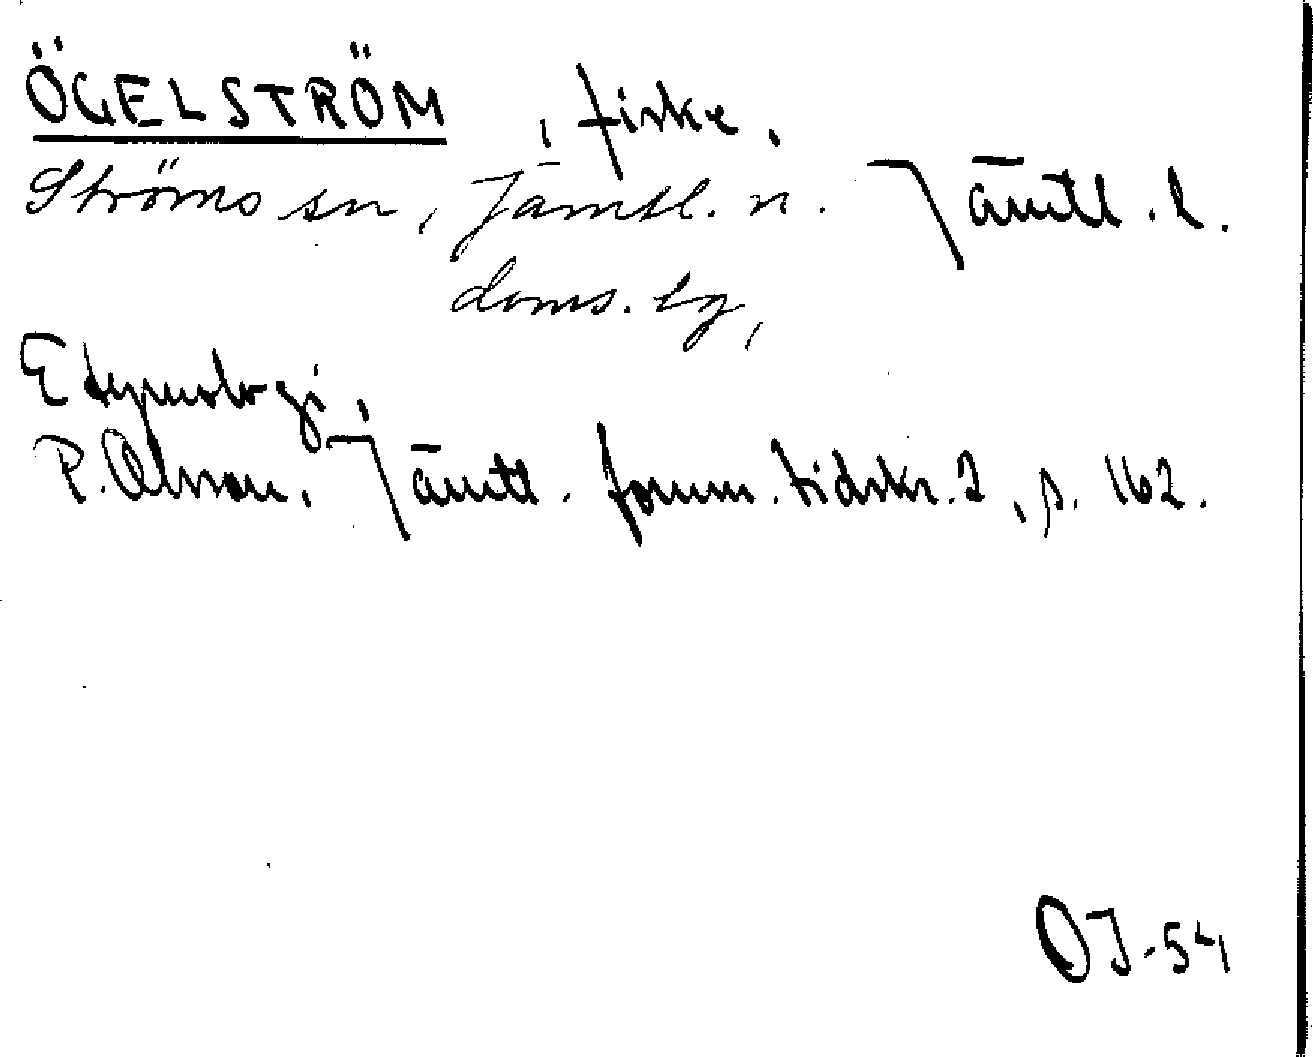 ÖGELSTRÖM, fiske.
Ströms sn, Jämtl. n. Jämtl. l.
doms. lg,
Etymologi,
P. Olsson. Jämtl. fornm. tidskr. 2, s. 162.
OJ-54